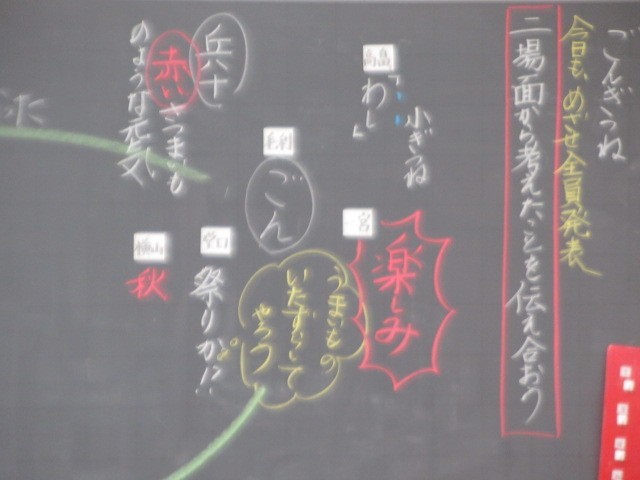 ごんぎつね
今日も、めざせ全員発表
二場面から考えたことを伝え合おう
小ぎつね
高畠
「わし」
宮
楽しみ
うまいもの
いたずらして
やろう
毛利
ごん
祭りか!?
兵十
赤いさつまいも
のような元気
横山
秋